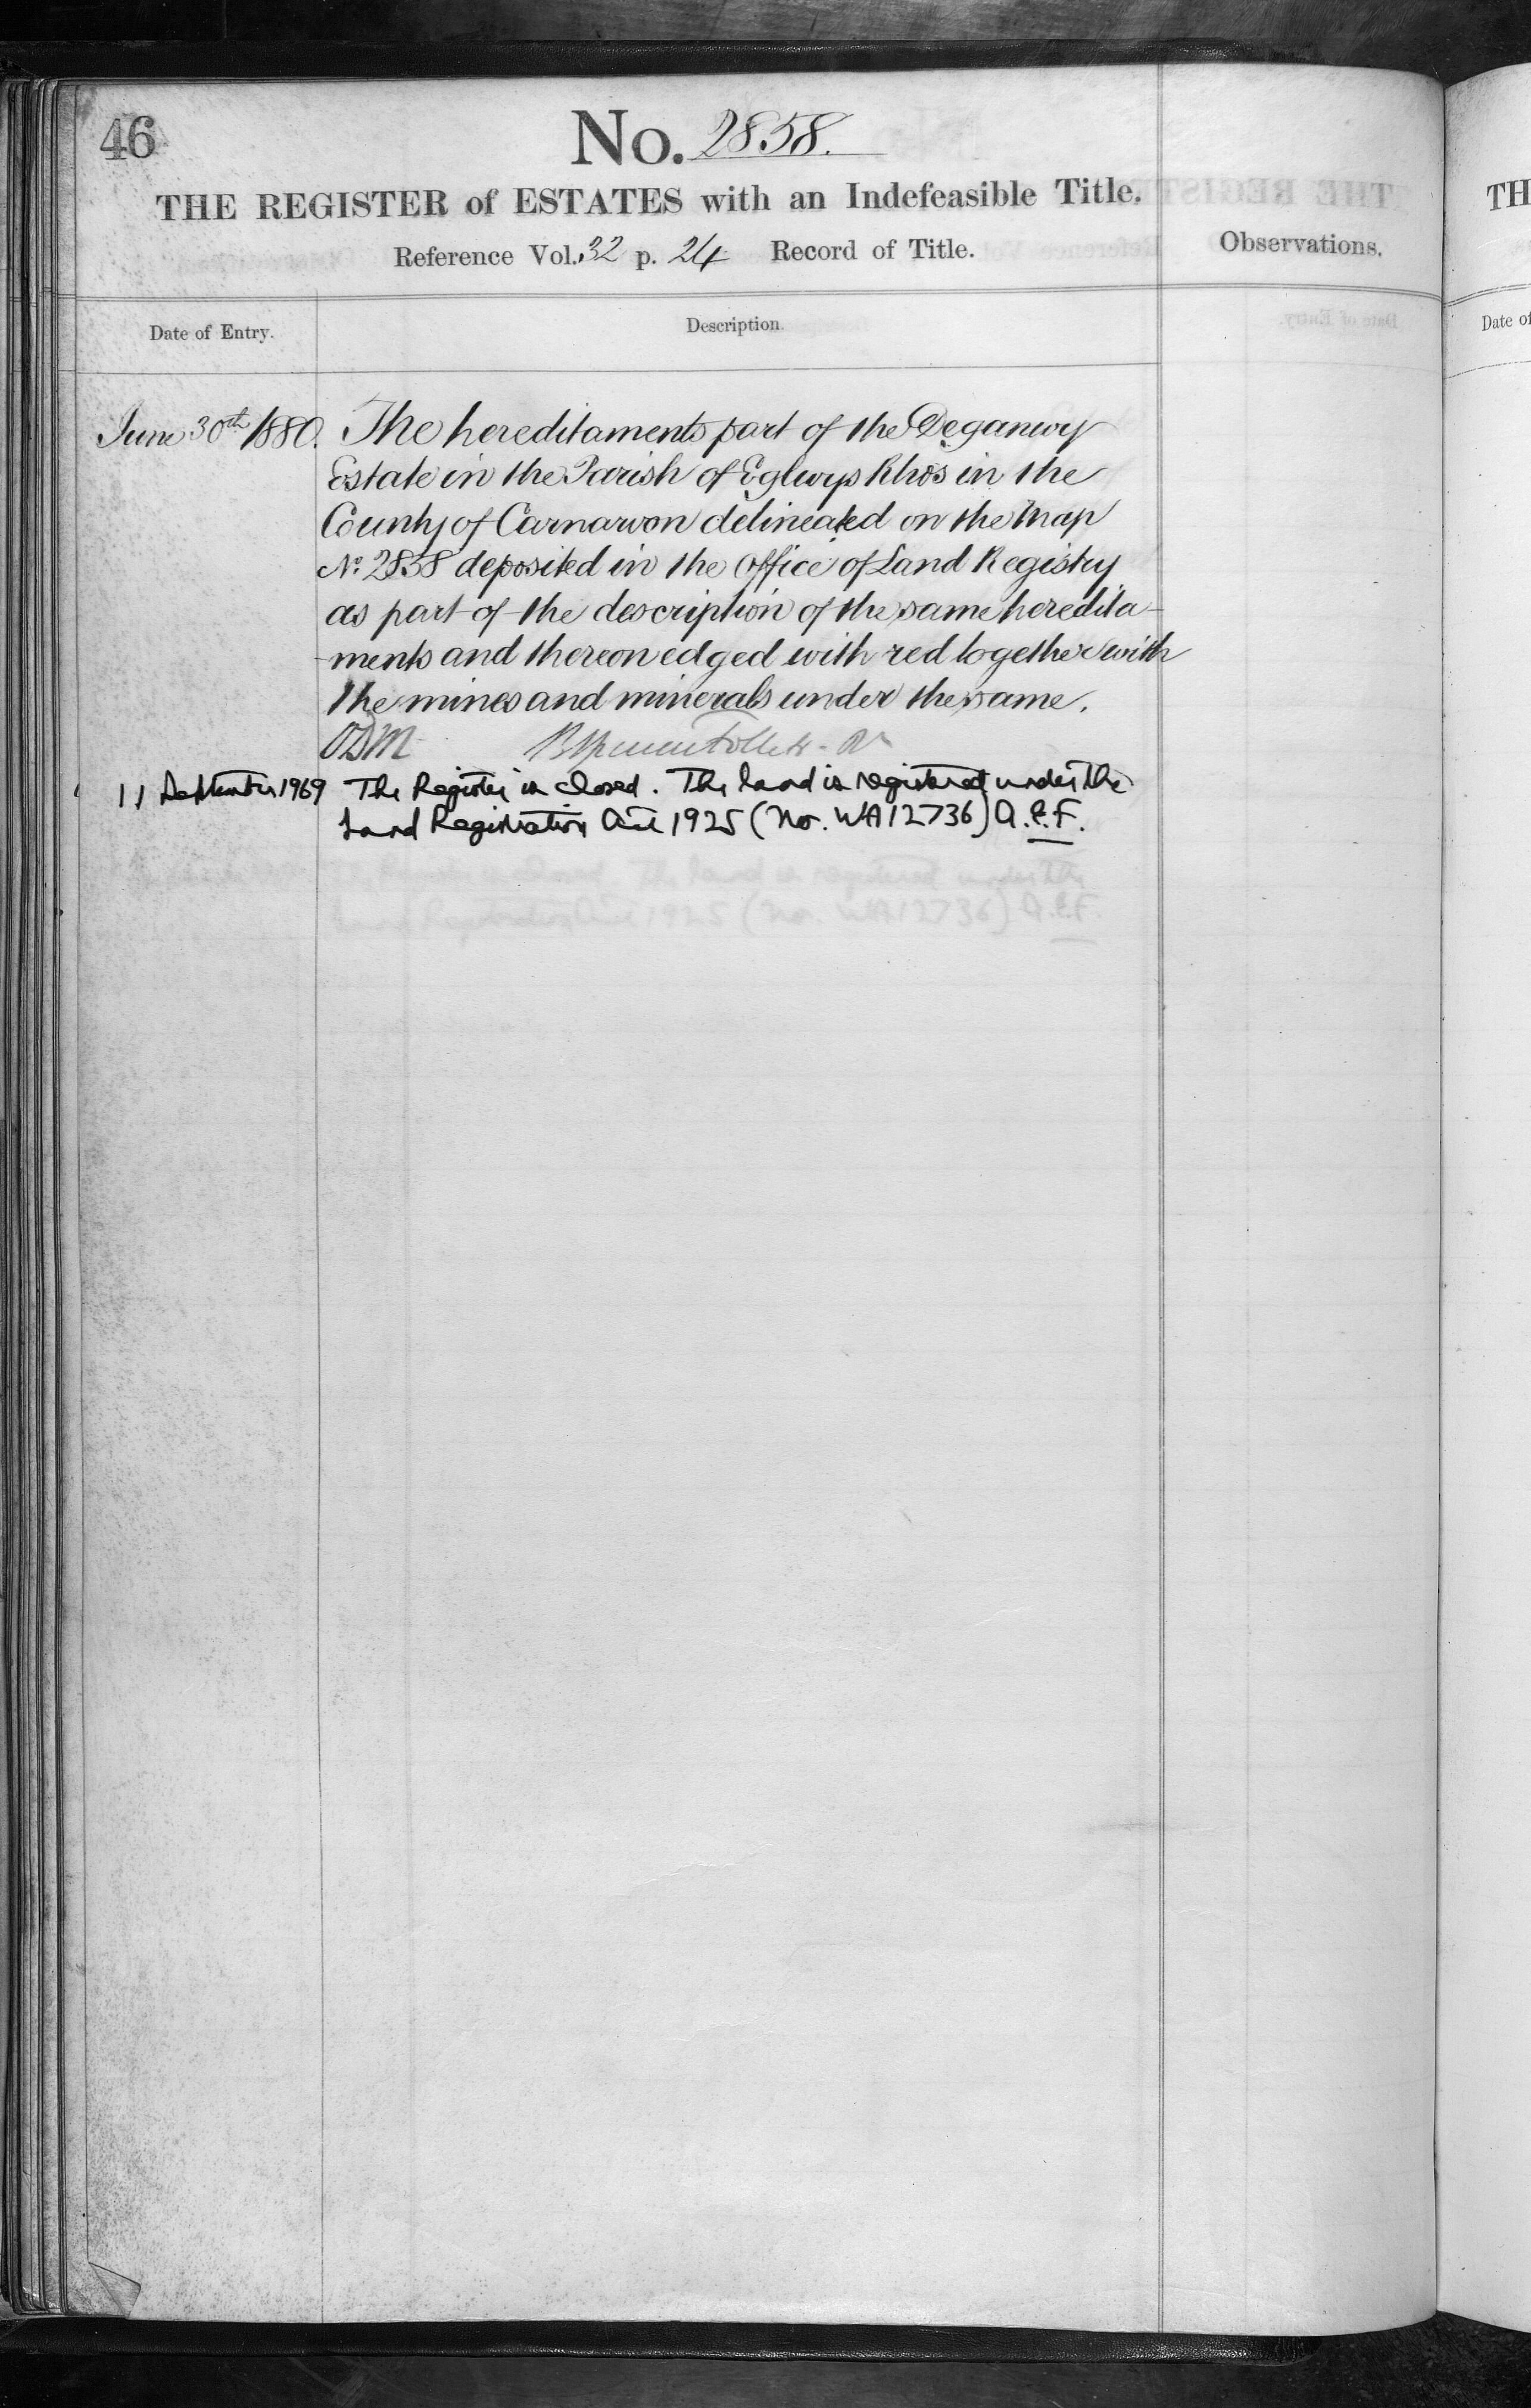 46
No. 2858.
THE REGISTER of ESTATES with an Indefeasible Title.
Reference Vol. 32 p. 24 Record of Title.
Observations.
Date of Entry.
Description.
June 30th 1880. The hereditaments part of the Deganwy
Estate in the Parish of Eglwys Rhos in the
County of Carnarvon delineated on the Map
No. 2858 deposited in the Office of Land Registry
as part of the description of the same heredita-
-ments and thereon edged with red together with
the mines and minerals under the same.
Follett
11 September 1969 The Register is closed. The land is registered under the
Land Registration Act 1925 (No. WA12736) A.E.F.
TH
Date of